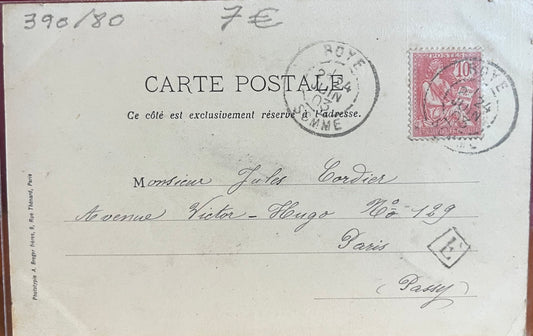 390/80 7€
ROYE
24
JUIN
03
SOMME
POSTES
10
ROYE
24
CARTE POSTALE
Ce côté est exclusivement réservé à l'adresse.
Monsieur Jules Cordier
Avenue Victor-Hugo No 129
Paris
(Passy)
E
Phototypie A. Breger frères, 9, Rue Thénard, Paris